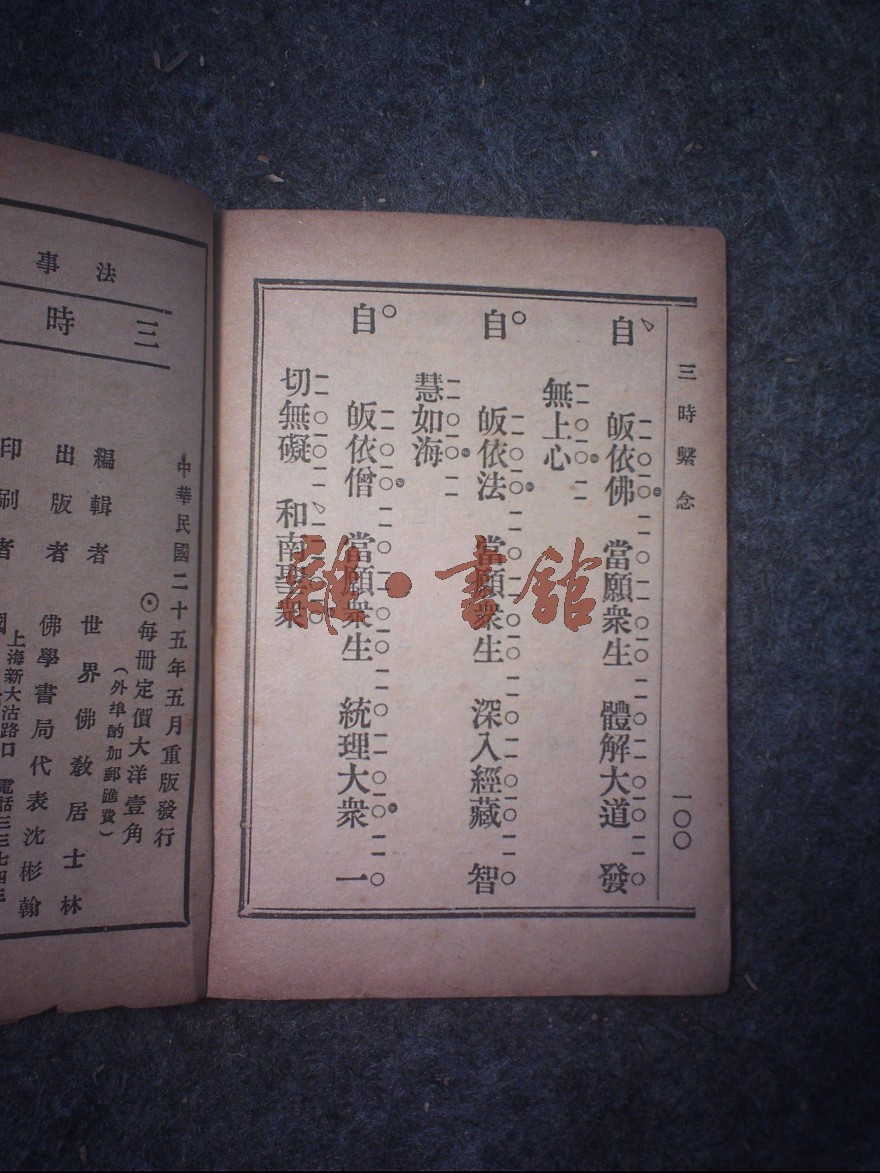 三時繫念
一〇〇
自
皈依佛 當願衆生 體解大道 發
無上心
自
皈依法 當願衆生 深入經藏 智
慧如海
自
皈依僧 當願衆生 統理大衆 一
切無礙 和南聖衆
雜·書館
法事
三時
中華民國二十五年五月重版發行
⊙每冊定價大洋壹角
(外埠酌加郵匯費)
編輯者 世界佛敎居士林
出版者 佛學書局代表沈彬翰
印刷者 國
上海新大沽路口 電話三三七四